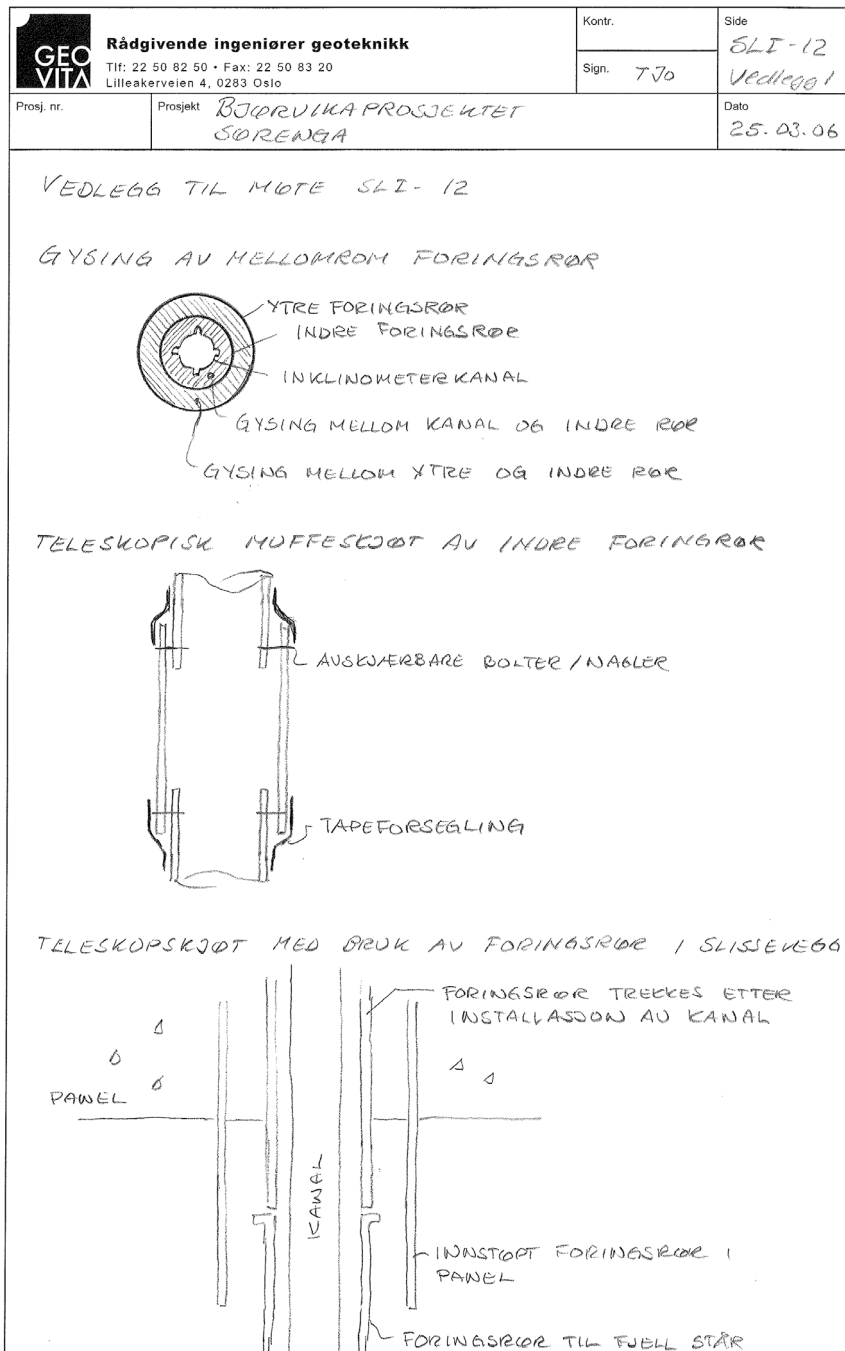 GEO
VITA
Rådgivende ingeniører geoteknikk
Tlf: 22 50 82 50 • Fax: 22 50 83 20
Lilleakerveien 4, 0283 Oslo
Kontr.
Sign. TJO
Side
SLI-12
Vedlegg 1
Prosj. nr.
Prosjekt BJØRVIKAPROSJEKTET
SØRENGA
Dato
25.03.06
VEDLEGG TIL MØTE SLI-12
GYSING AV MELLOMROM FORINGSRØR
YTRE FORINGSRØR
INDRE FORINGSRØR
INKLINOMETERKANAL
GYSING MELLOM KANAL OG INDRE RØR
GYSING MELLOM YTRE OG INDRE RØR
TELESKOPISK MUFFESKJØT AV INDRE FORINGRØR
AVSKJÆRBARE BOLTER / NAGLER
TAPEFORSEGLING
TELESKOPSKJØT MED BRUK AV FORINGSRØR I SLISSEVEGG
FORINGSRØR TREKKES ETTER
INSTALLASJON AV KANAL
PANEL
KANAL
INNSTØPT FORINGSRØR I
PANEL
FORINGSRØR TIL FJELL STÅR